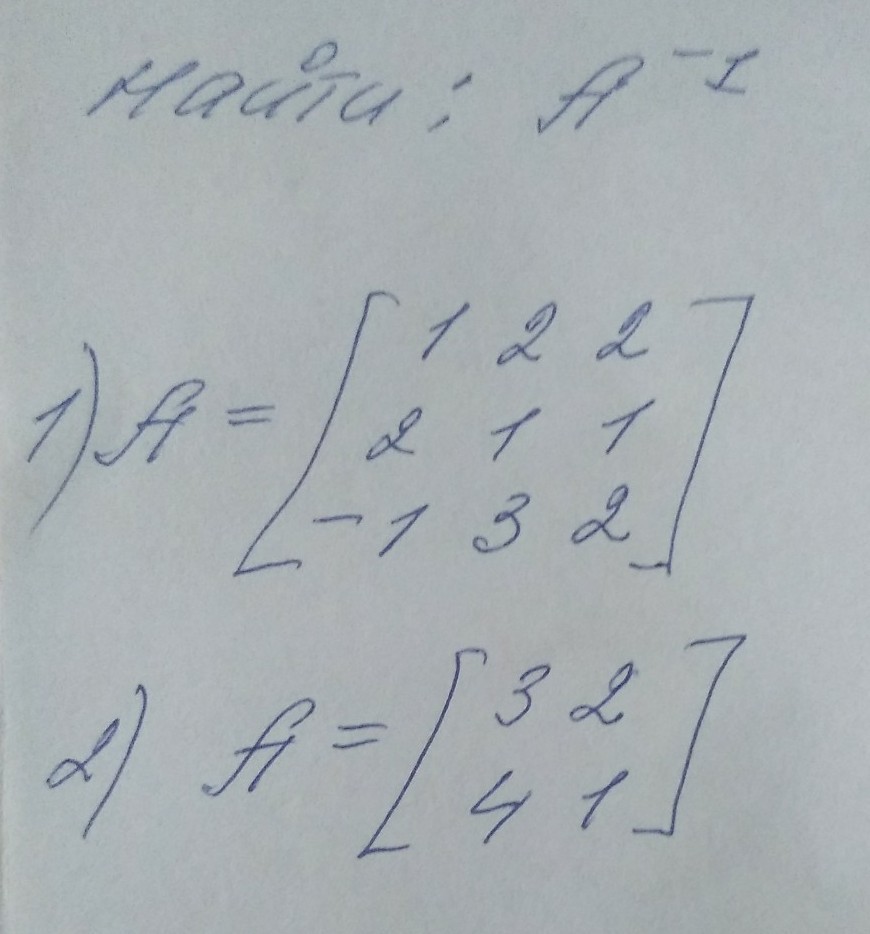 Найти: A⁻¹
1) A = [ 1 2 2
2 1 1
-1 3 2 ]
2) A = [ 3 2
4 1 ]